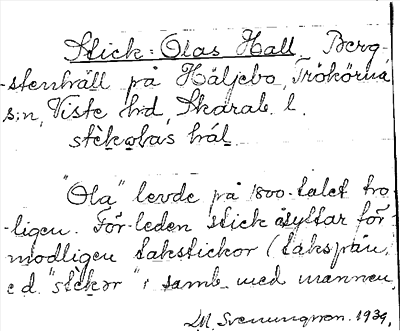 Stick-Olas Hall. Berg-
-stenhäll på Häljebo, Trökörna
s:n, Viste hd, Skarab. l.
stèkolas hál
"Ola" levde på 1800-talet tro-
-ligen. Förleden stick åsyftar för-
modligen takstickor (takspån,
e d. "stèkor") i samb. med mannen.
M. Svenungson. 1939.